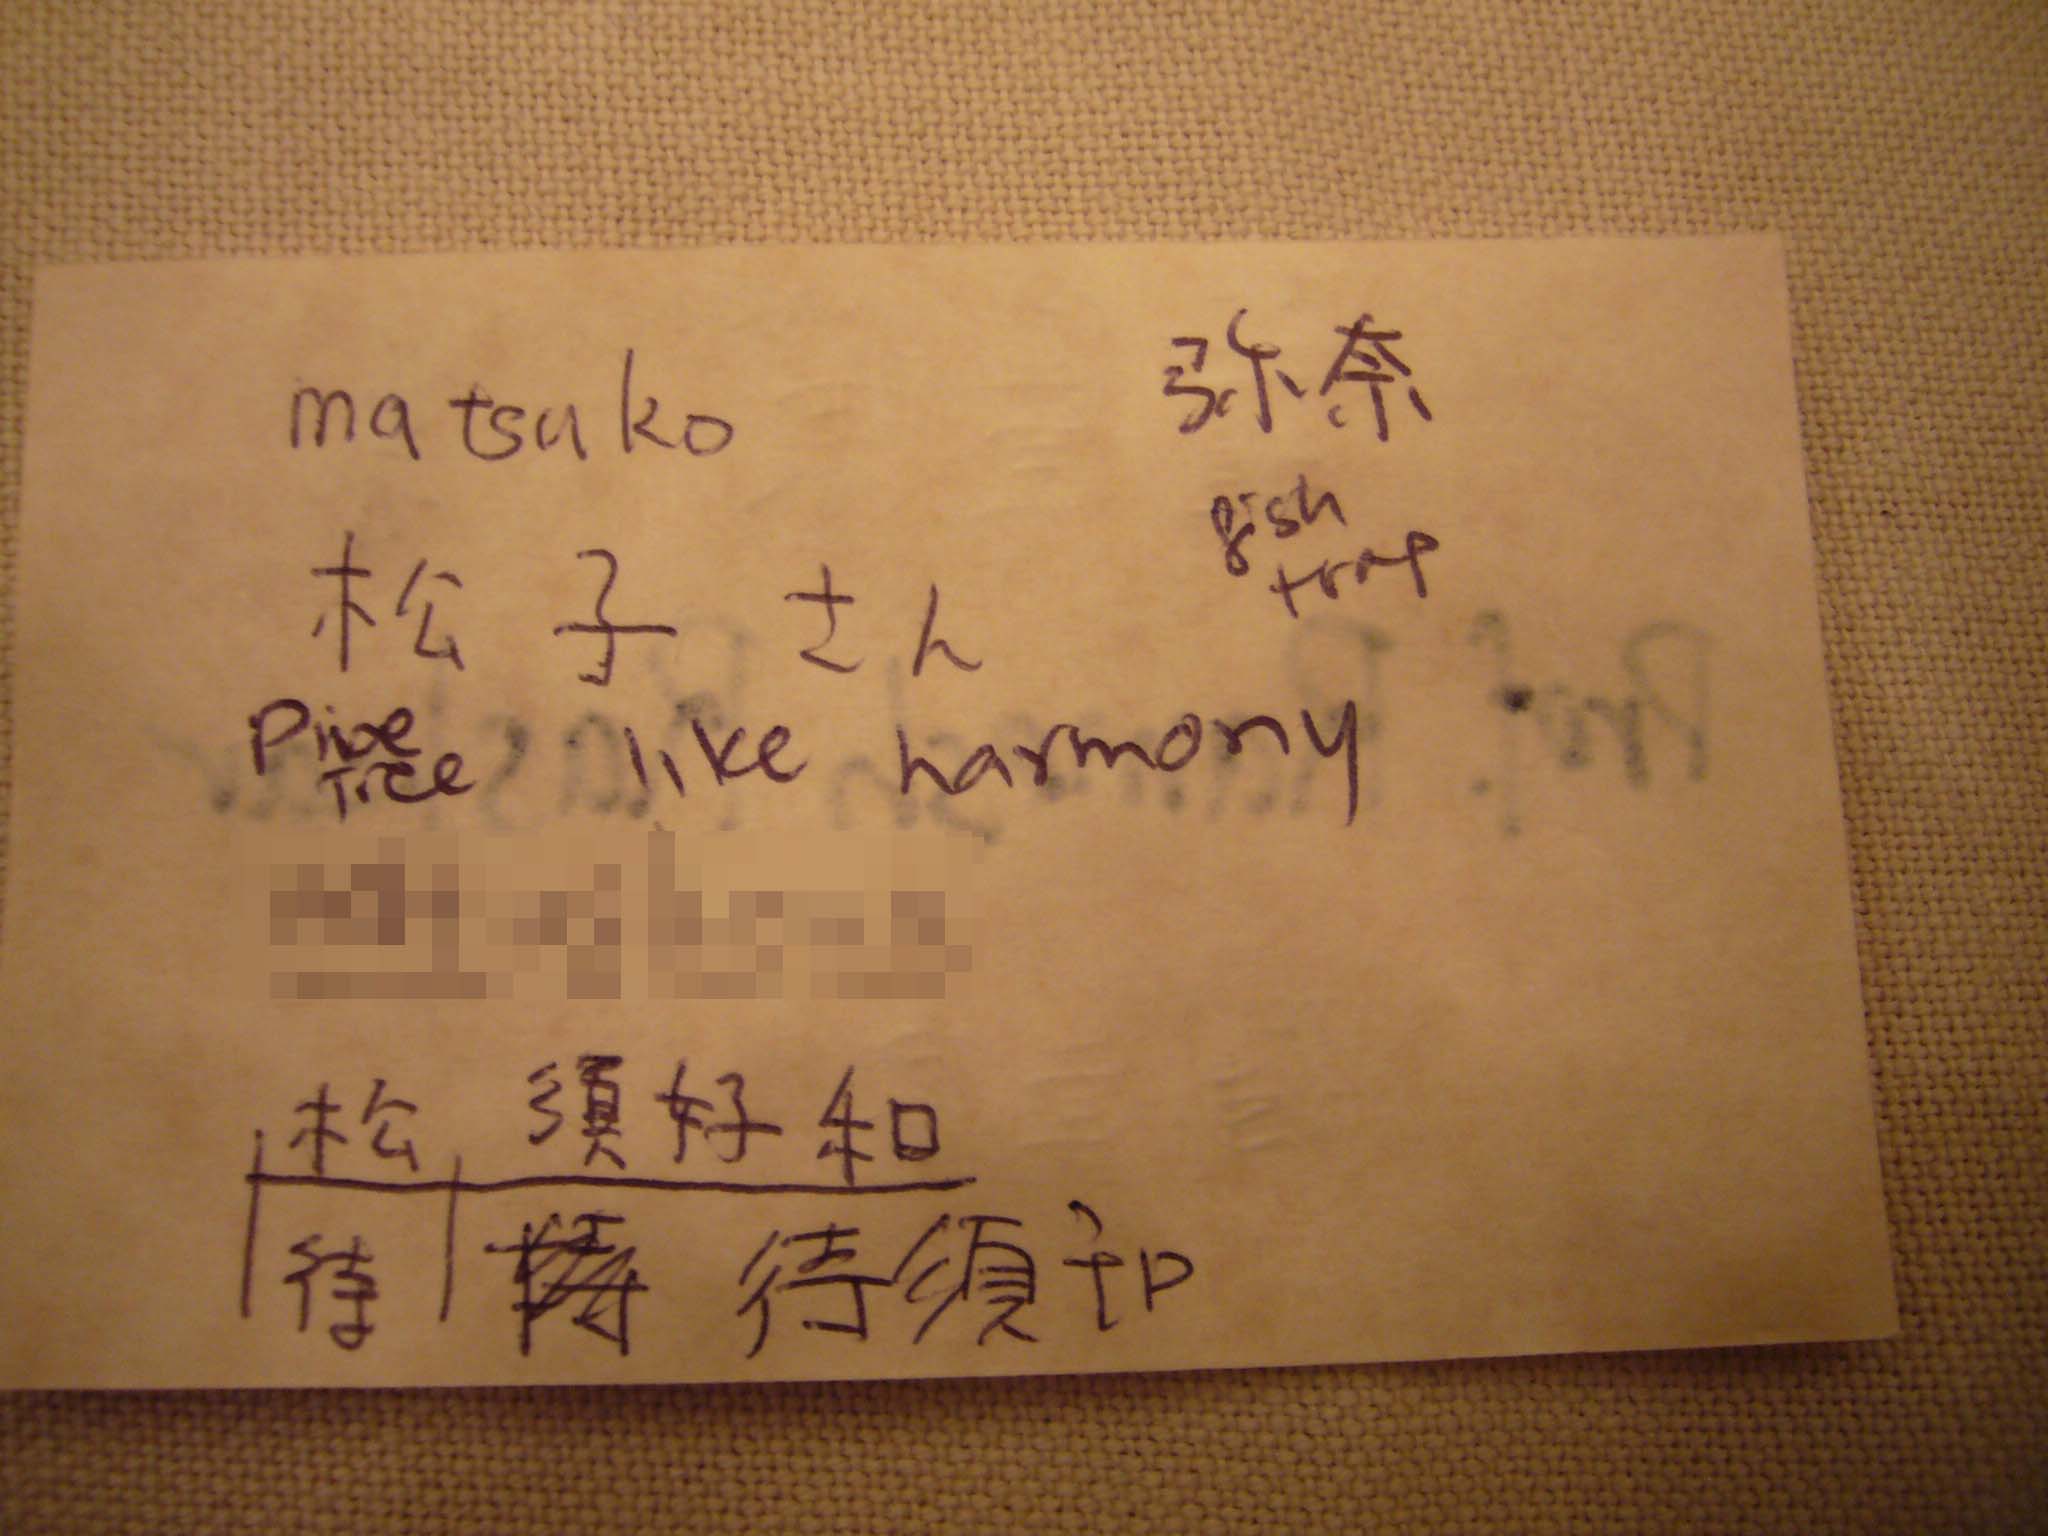 matsuko
弥奈
松子さん
fish
trap
pine tree like harmony
松 須好和
待 待須和